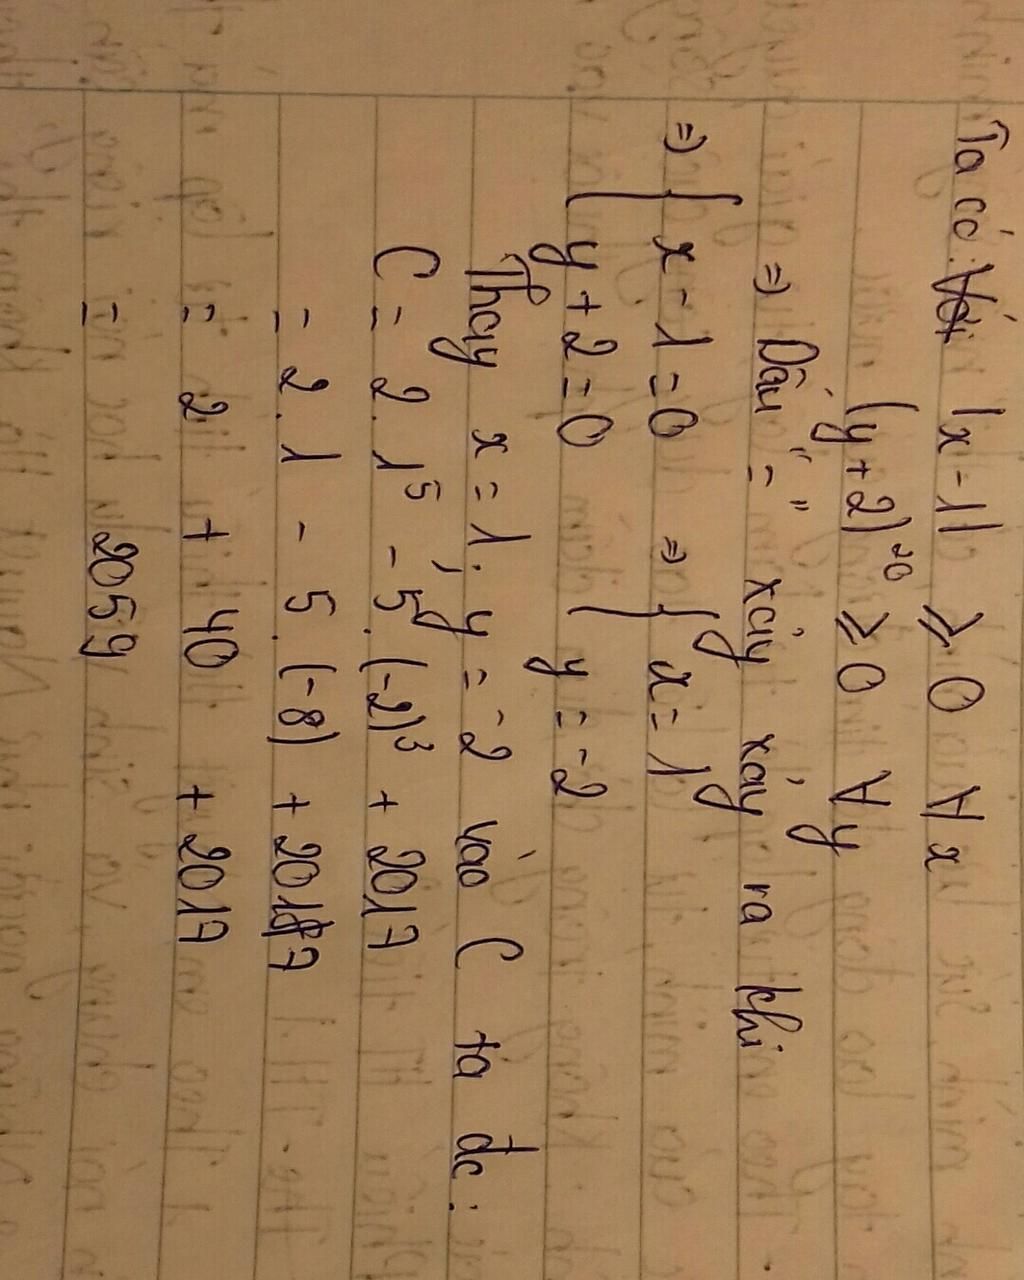 Ta có: |x - 1| ≥ 0 ∀ x
(y + 2)²⁰ ≥ 0 ∀ y
=> Dấu "=" xảy xảy ra khi
=> { x - 1 = 0 => { x = 1
y + 2 = 0 y = -2
Thay x = 1; y = -2 vào C ta dc:
C = 2.1⁵ - 5.(-2)³ + 2017
= 2.1 - 5.(-8) + 2017
= 2 + 40 + 2017
= 2059